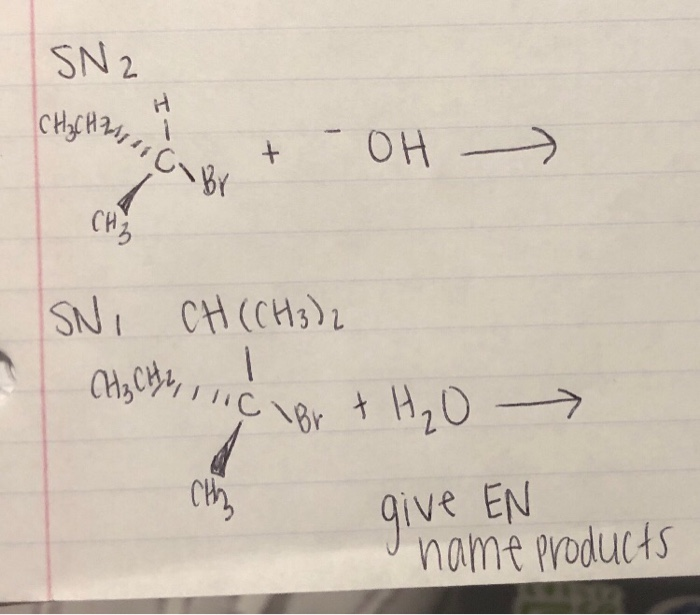 SN2
H
CH3CH2 C Br + ⁻OH →
CH3
SN1 CH(CH3)2
CH3CH2 C Br + H2O →
CH3
give EN
name products